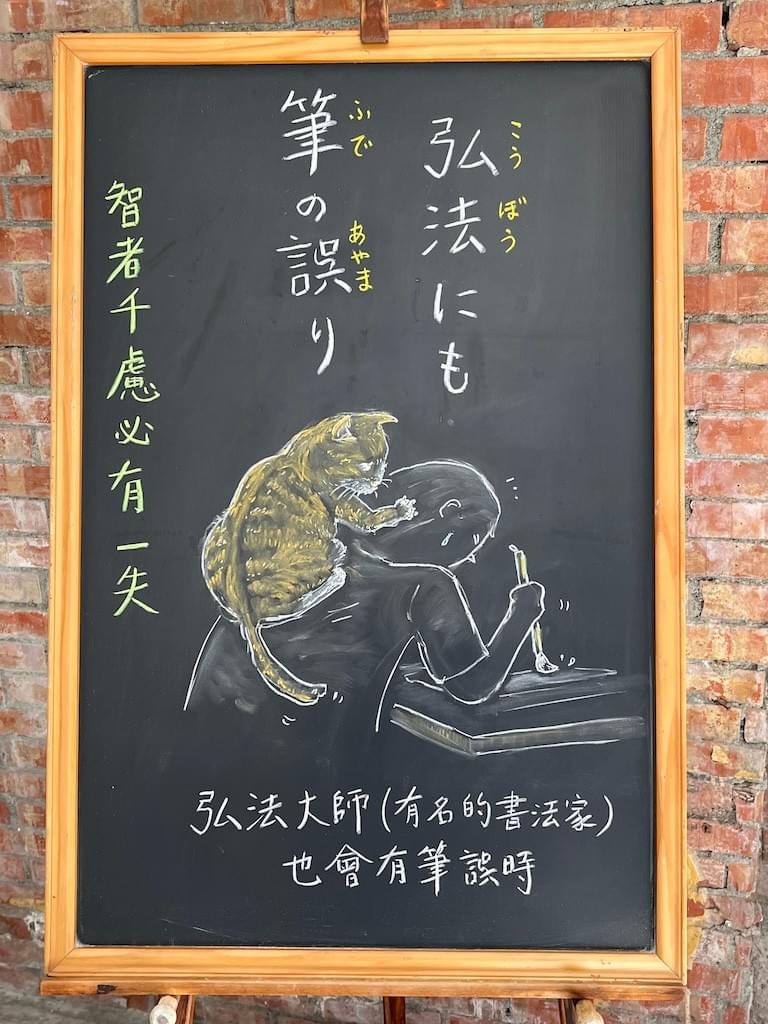 弘法にも
こうぼう
筆の誤り
ふで
あやま
智者千慮必有一失
弘法大師(有名的書法家)
也會有筆誤時